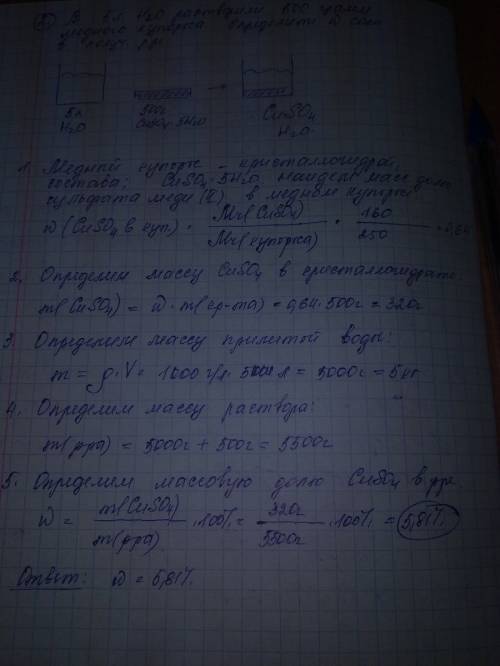 В 5л H₂O растворили 500 грамм
медного купороса. Определить ω соли
в получ. р-ре
5л
H₂O
500г
CuSO₄·5H₂O
→
CuSO₄
H₂O
1. Медный купорос – кристаллогидрат
состава: CuSO₄·5H₂O, найдем масс долю
сульфата меди (II) в медном купоросе
ω (CuSO₄ в куп.) = Mr(CuSO₄) / Mr(купороса) = 160 / 250 = 0,64
2. Определим массу CuSO₄ в кристаллогидрате:
m(CuSO₄) = ω · m(кр-та) = 0,64 · 500г = 320г
3. Определим массу прилитой воды:
m = ρ·V = 1000 г/л · 5 л = 5000г = 5кг
4. Определим массу раствора:
m(р-ра) = 5000г + 500г = 5500г
5. Определим массовую долю CuSO₄ в р-ре
ω = m(CuSO₄) / m(р-ра) · 100% = 320г / 5500г · 100% = 5,81%
Ответ: ω = 5,81%